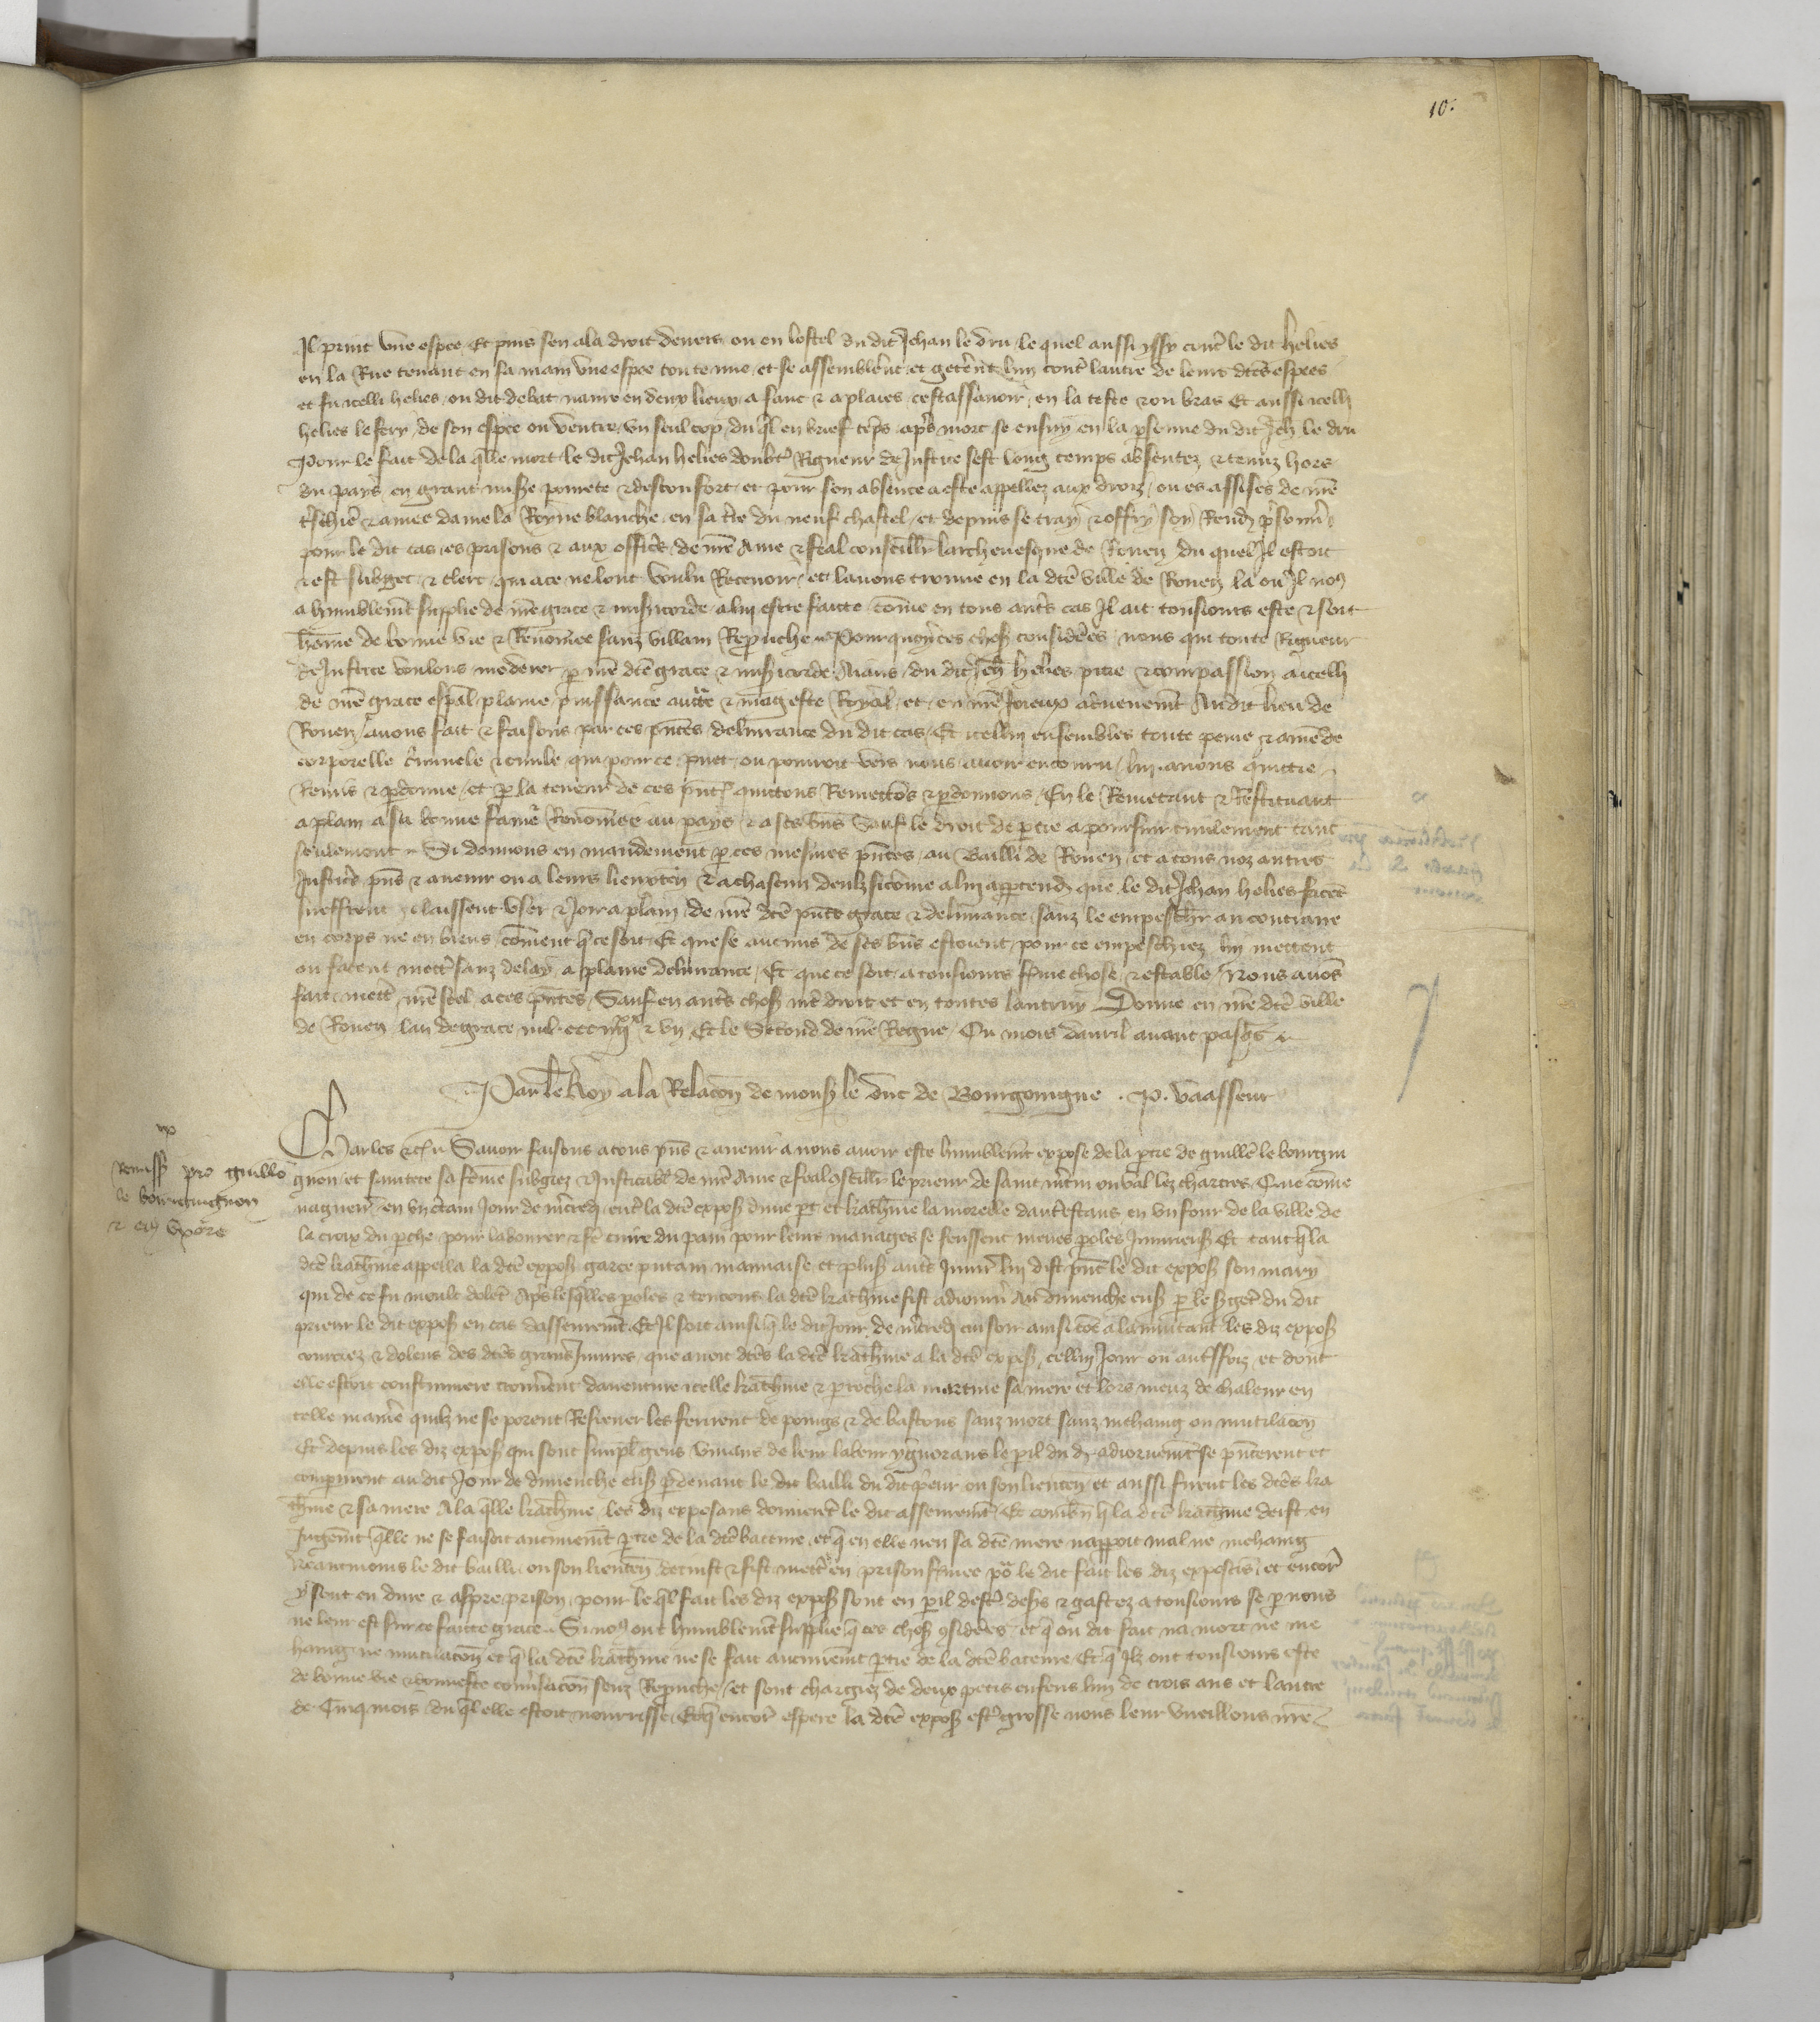 10.
Il print une espee Et puis sen ala droit devers ou en lostel du dit Jehan le dru le quel aussi yssy contre le dit helies
en la Rue tenant en sa main une espee toute nue et se assemblerent et geterent lun contre lautre de leurs dites espees
et fu icelli helies ou dit debat navre en deux lieux a sanc et a plaies cestassavoir en la teste et ou bras Et aussi icelli
helies le fery de son espee ou ventre un seul cop du quel en brief temps apres mort se ensuy en la personne du dit Jeh le dru
Pour le fait de la quelle mort le dit Jehan helies doubtant Rigueur de Justice sest long temps absentez et tenuz hors
du pays en grant misere povrete et desconfort et pour son absence a este appellez aux droiz ou es assises de nostre
treschiere et amee dame la Royne blanche en sa terre du neuf chastel et depuis se tray et offry soy Rendre prisonnier
pour le dit cas es prisons et aux officiers de nostre ame et feal conseiller larchevesque de Rouen du quel Il estoit
et est subget et clerc qui a ce ne lont voulu Recevoir et lavons trouve en la dite ville de Rouen la ou Il nous
a humblement supplie de nostre grace et misericorde a lui estre faitte comme en tous autres cas Il ait tousjours este et soit
homme de bonne vie et Renommee sanz villain Reprouche Pourquoy ces choses considerees nous qui toute Rigueur
de Justice voulons moderer par nostre dite grace et misericorde Aians du dit Jeh helies pitie et compassion a icelli
de nostre grace especial plaine puissance auctorite et mageste Royal et en nostre Joieux advenement Audit lieu de
Rouen avons fait et faisons par ces presentes delivrance du dit cas Et icellui ensembles toute peine et amende
corporelle criminele et civile qui pour ce puet ou pourroit vers nous avoir encouru lui avons quittie
Remis et pardonne et par la teneur de ces presentes quittons Remettons et pardonnons En le Remetant et Restituant
a plain a sa bonne fame Renommee au pays et a ses biens Sauf le droit de partie a poursuir civilement tant
seulement Si donnons en mandement par ces mesmes presentes au Bailli de Rouen et a tous noz autres
Justiciers presens et avenir ou a leurs lieuxtenans et a chascun deulz si comme a lui appartendra que le dit Jehan helies facent
seuffrent et laissent user et Joir a plain de nostre dite presente grace et delivrance sanz le empescher au contraire
en corps ne en biens comment que ce soit Et que se aucuns de ses biens estoient pour ce empeschiez lui mettent
ou facent mettre sanz delay a plaine delivrance Et que ce soit a tousjours ferme chose et estable Nous avons
fait mettre nostre seel a ces presentes Sauf en autres choses nostre droit et en toutes lautruy Donne en nostre dite ville
de Rouen lan de grace mil ccc iiijxx et un Et le Second de nostre Regne Ou mois davril avant pasques
Par le Roy a la Relacion de mons le duc de Bourgoingne . P. Vaasseur
Remiss pro guillo
le bourguignon
et ejus uxore
Charles etc Savoir faisons a tous presens et avenir a nous avoir este humblement expose de la partie de guillem le bourgui
gnon et sa femme subgiez et Justicables de nostre ame et feal conseiller le prieur de saint martin ou val lez chartres Que comme
naguere en un certain Jour de mercredi entre la dite exposant dune part et katherine la morelle dautre estans en un four de la ville de
la croix du perche pour labourer et faire cuire du pain pour leurs manages se feussent meues paroles Injurieuses Et tant que la
dite katherine appella la dite exposant garce putain mauvaise et plusieurs autres Injures lui dist present le dit exposant son mary
qui de ce fu moult dolent Apres lesquelles paroles et tencons la dite katherine fist adjourner Au dimenche ensuivant par le sergent du dit
prieur le dit exposant en cas dasseurement Et Il soit ainsi que le dit Jour de mercredi au soir ainsi comme a lanuitant les diz exposans
courciez et dolens des dites grans Injures que avoit dites la dite katherine a la dite exposant cellui Jour ou autresfoiz et dont
elle estoit coustumiere trouverent daventure icelle katherine et perroche la martine sa mere et lors meuz de chaleur en
telle maniere quilz ne se porent Refrener les ferirent de poings et de bastons sanz mort sanz mehaing ou mutilacion
Et depuis les diz exposans qui sont simples gens vivans de leur labeur ygnorans le peril du dit adjornement se presenterent et
comparurent au dit Jour de dimenche ensuivant par devant le dit bailli du dit prieur ou son lieutenant et aussi furent les dites ka
therine et sa mere A la quelle katherine les diz exposans donnerent le dit asseurement Et combien que la dite katherine deist en
Jugement quelle ne se faisoit aucunement partie de la dite bature et que en elle nen sa dite mere napparoit mal ne mehaing
Neantmoins le dit bailli ou son lieutenant detinst et fist mettre en prison fermee pour le dit fait les diz exposans et encor
y sont en dure et aspre prison pour le quel fait les diz exposans sont en peril destre desers et gastez a tousjours se par nous
ne leur est sur ce faitte grace Si nous ont humblement supplie que ces choses considerees et que ou dit fait na mort ne me
haing ne mutilacion et que la dite katherine ne se fait aucunement partie de la dite bateure Et que Ilz ont tousjours este
de bonne vie et honneste conversacion senz Reprouche et sont chargiez de deux petis enfens lun de trois ans et lautre
de Cinq mois du quel elle estoit nourrisse Et que encor espere la dite exposant estre grosse nous leur vueillons nostre